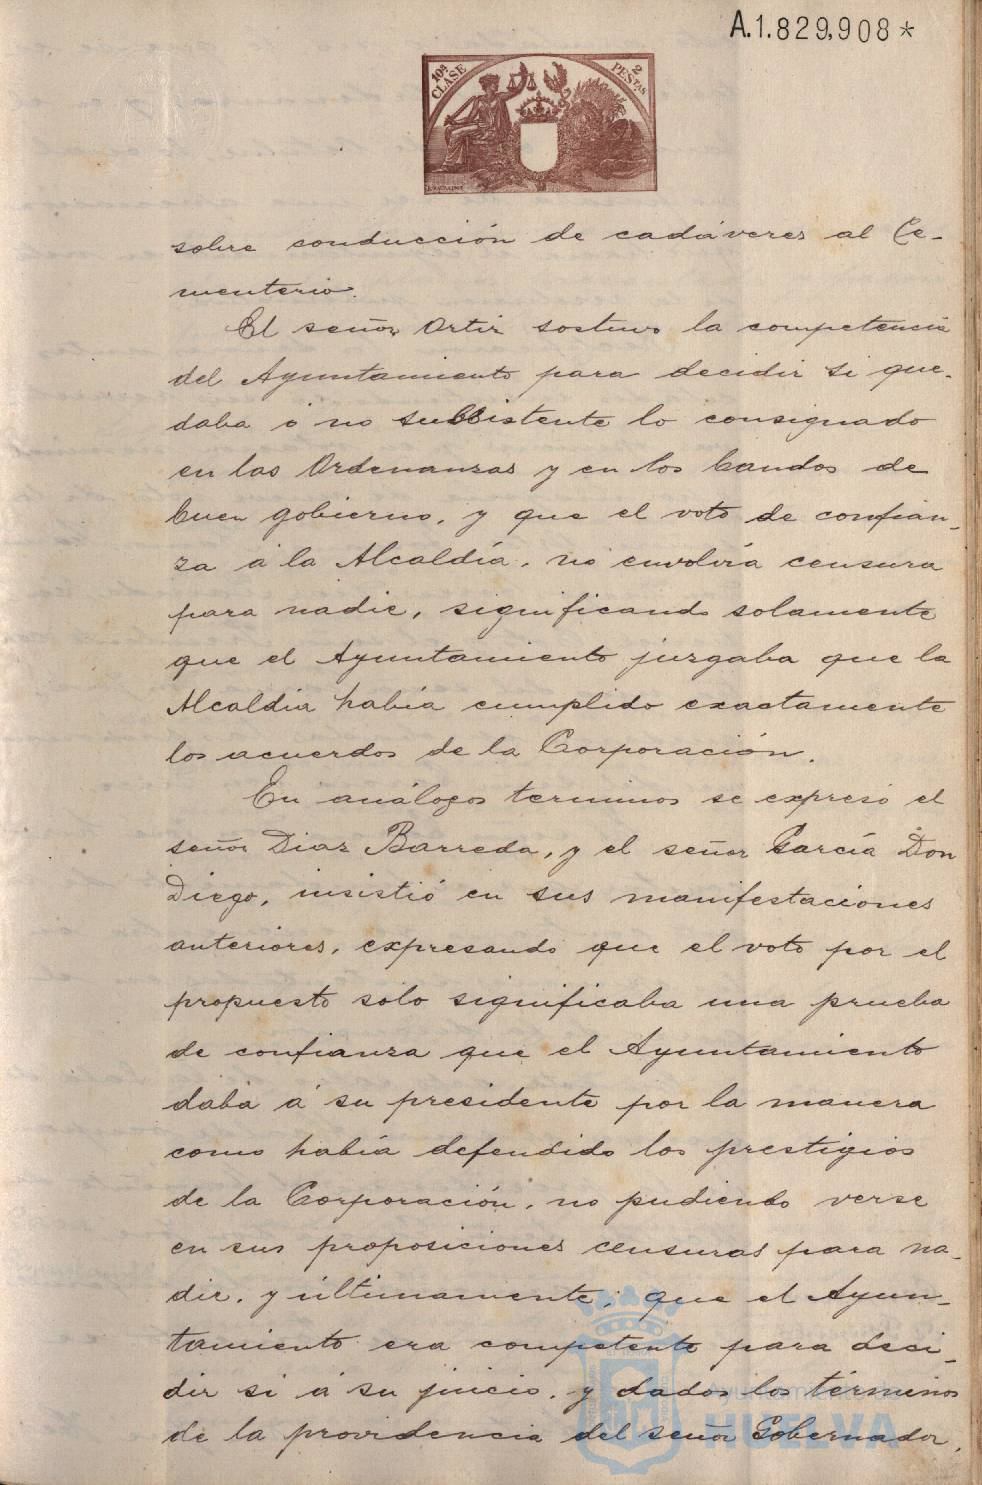 A.1.829,908*
10ª CLASE
2 PESTAS
sobre conducción de cadáveres al Ce-
menterio.
El señor Ortiz sostuvo la competencia
del Ayuntamiento para decidir si que-
daba ó no subsistente lo consignado
en las Ordenanzas y en los bandos de
buen gobierno, y que el voto de confian-
za á la Alcaldía, no envolvía censura
para nadie, significando solamente
que el Ayuntamiento juzgaba que la
Alcaldía había cumplido exactamente
los acuerdos de la Corporación.
En análogos terminos se expresó el
señor Diaz Barreda, y el señor García Don
Diego, insistió en sus manifestaciones
anteriores, expresando que el voto por el
propuesto solo significaba una prueba
de confianza que el Ayuntamiento
daba á su presidente por la manera
como había defendido los prestigios
de la Corporación, no pudiendo verse
en sus proposiciones censuras para na-
die, y últimamente, que el Ayun-
tamiento era competente para deci-
dir si á su juicio, y dados los términos
de la providencia del señor Gobernador,
Ayuntamiento de
HUELVA